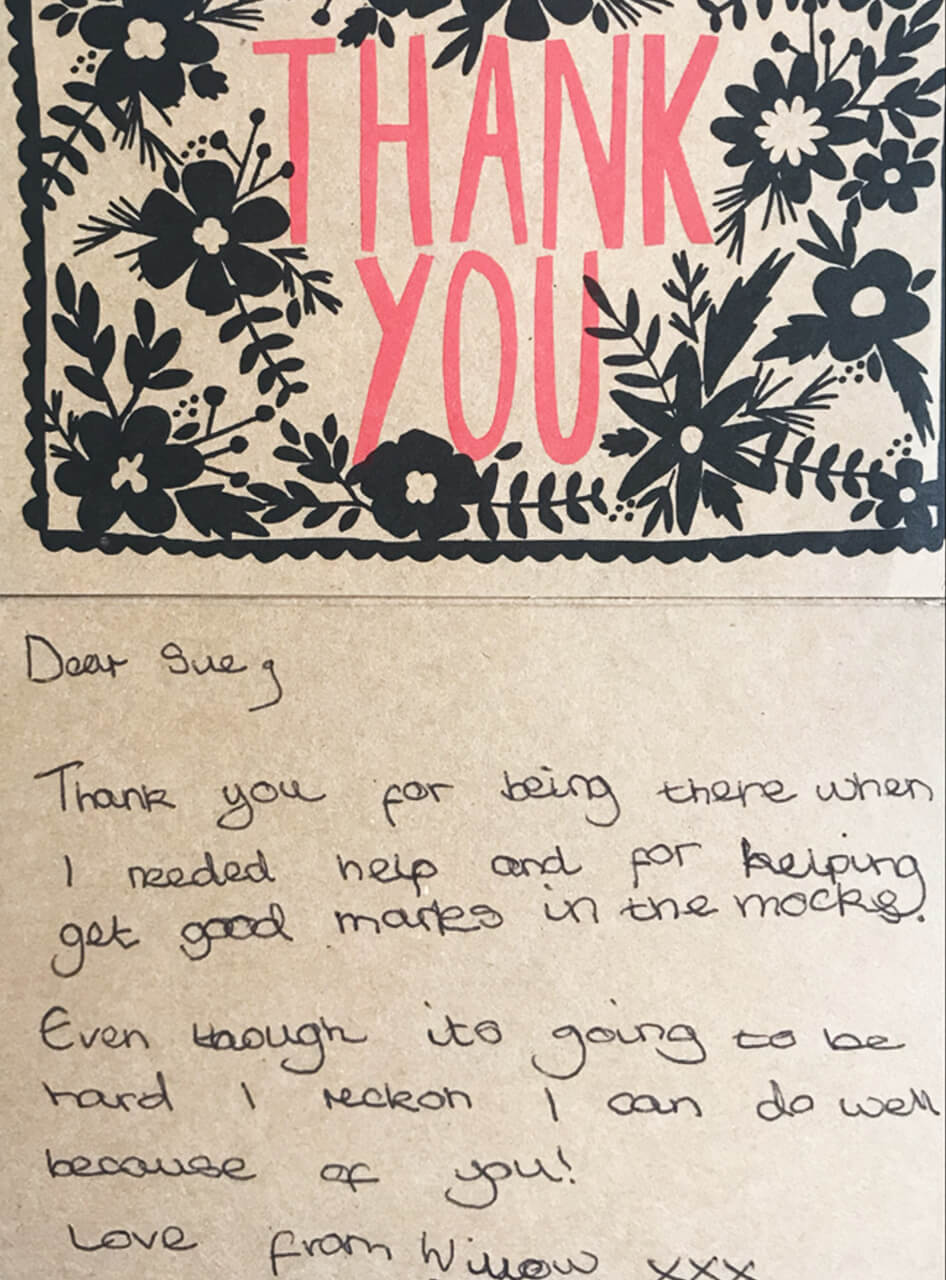 THANK
YOU
Dear Sue,
Thank you for being there when
I needed help and for helping
get good marks in the mocks.
Even though its going to be
hard I reckon I can do well
because of you!
Love from Willow xxx